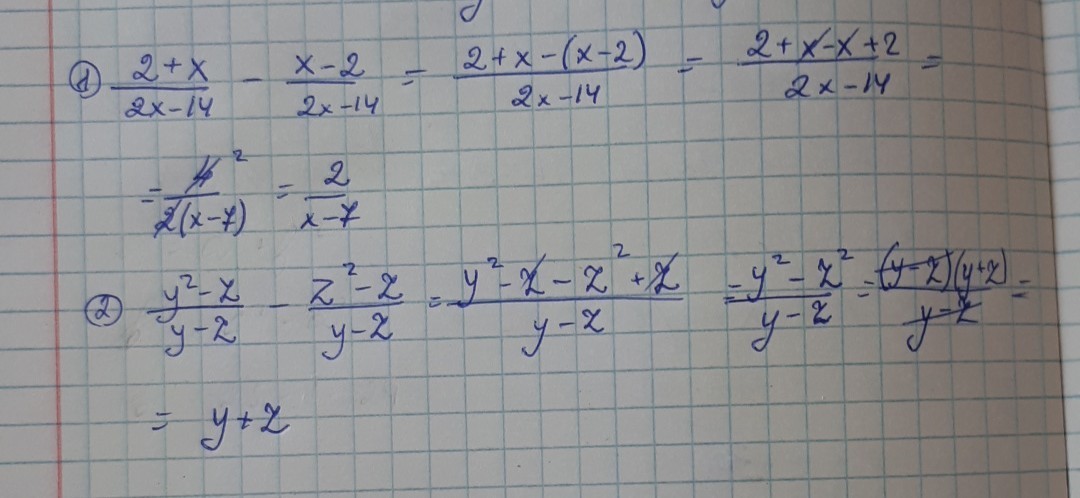 ① (2+x)/(2x-14) - (x-2)/(2x-14) = (2+x-(x-2))/(2x-14) = (2+x-x+2)/(2x-14) =
= 4²/(2(x-7)) = 2/(x-7)
② (y²-z)/(y-z) - (z²-z)/(y-z) = (y²-z-z²+z)/(y-z) = (y²-z²)/(y-z) = ((y-z)(y+z))/(y-z) =
= y+z